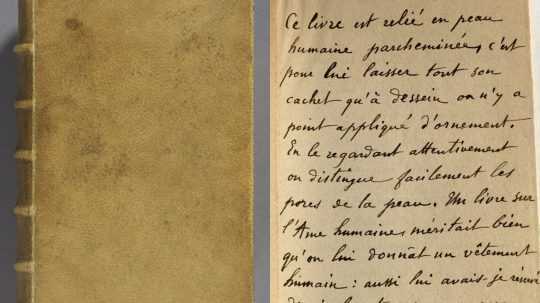 Ce livre est relié en peau
humaine parcheminée, c'est
pour lui laisser tout son
cachet qu'à dessein on n'y a
point appliqué d'ornement.
En le regardant attentivement
on distingue facilement les
pores de la peau. Un livre sur
l'Ame humaine, méritait bien
qu'on lui donnât un vêtement
humain : aussi lui avais-je réservé